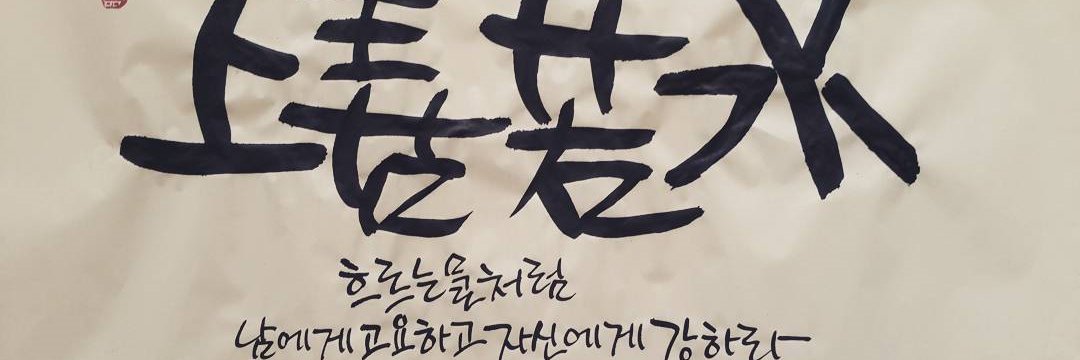 上善若水
흐르는 물처럼
남에게 고요하고 자신에게 강하라